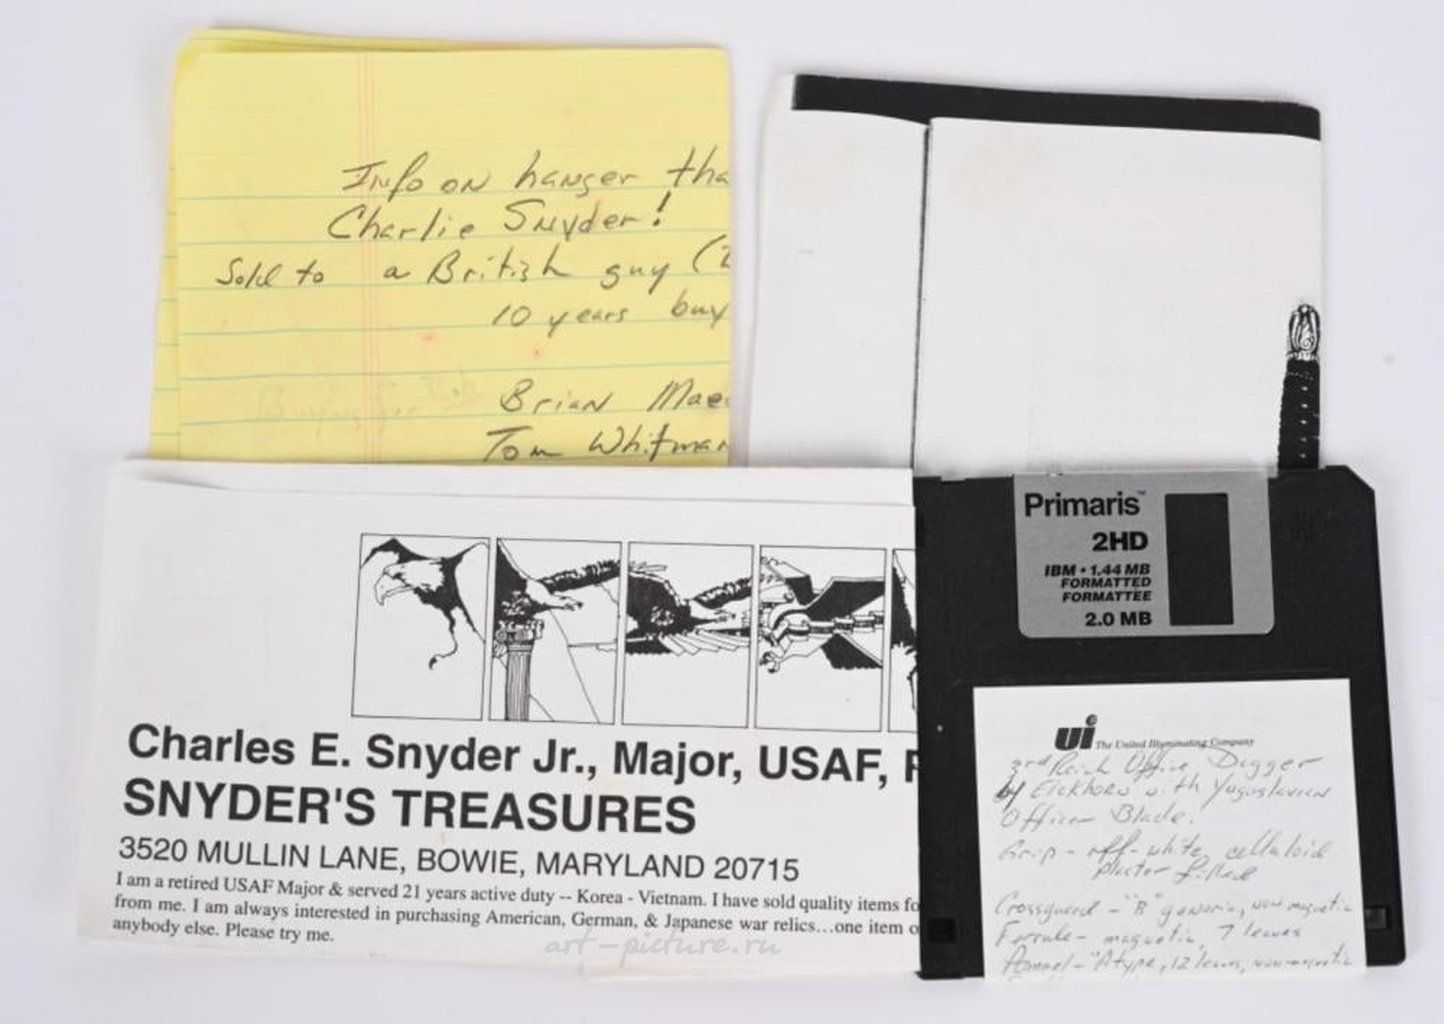 Info on hanger tha
Charlie Snyder!
Sold to a British guy
10 years buy
Brian Mae
Tom Whitman
Charles E. Snyder Jr., Major, USAF, R
SNYDER'S TREASURES
3520 MULLIN LANE, BOWIE, MARYLAND 20715
I am a retired USAF Major & served 21 years active duty -- Korea - Vietnam. I have sold quality items fo
from me. I am always interested in purchasing American, German, & Japanese war relics...one item o
anybody else. Please try me.
Primaris™
2HD
IBM • 1.44 MB
FORMATTED
FORMATTEE
2.0 MB
ui The United Illuminating Company
3rd Reich Office Dagger
by Eickhorn with Yugoslavian
Officer Blade.
Grip - off-white, celluloid
Plaster filled
Crossguard - "B" generic, non magnetic
Ferrule - magnetic, 7 leaves
Pommel - "A type, 12 leaves, non-magnetic
art-picture.ru